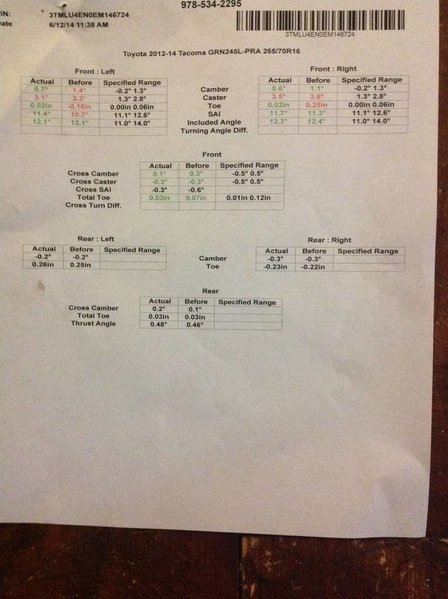 978-534-2295
IN: 3TMLU4EN0EM146724
ate 6/12/14 11:38 AM
3TMLU4EN0EM146724
Toyota 2012-14 Tacoma GRN245L-PRA 265/70R16
Front : Left Front : Right
Actual Before Specified Range Actual Before Specified Range
0.7° 1.4° -0.2° 1.3° Camber 0.6° 1.1° -0.2° 1.3°
3.1° 3.3° 1.3° 2.8° Caster 3.5° 3.6° 1.3° 2.8°
0.02in -0.18in 0.00in 0.06in Toe 0.02in 0.25in 0.00in 0.06in
11.4° 10.7° 11.1° 12.6° SAI 11.7° 11.3° 11.1° 12.6°
12.1° 12.1° 11.0° 14.0° Included Angle 12.3° 12.4° 11.0° 14.0°
Turning Angle Diff.
Front
Actual Before Specified Range
Cross Camber 0.1° 0.3° -0.5° 0.5°
Cross Caster -0.3° -0.3° -0.5° 0.5°
Cross SAI -0.3° -0.6°
Total Toe 0.03in 0.07in 0.01in 0.12in
Cross Turn Diff.
Rear : Left Rear : Right
Actual Before Specified Range Actual Before Specified Range
-0.2° -0.2° Camber -0.3° -0.3°
0.26in 0.25in Toe -0.23in -0.22in
Rear
Actual Before Specified Range
Cross Camber 0.2° 0.1°
Total Toe 0.03in 0.03in
Thrust Angle 0.48° 0.46°